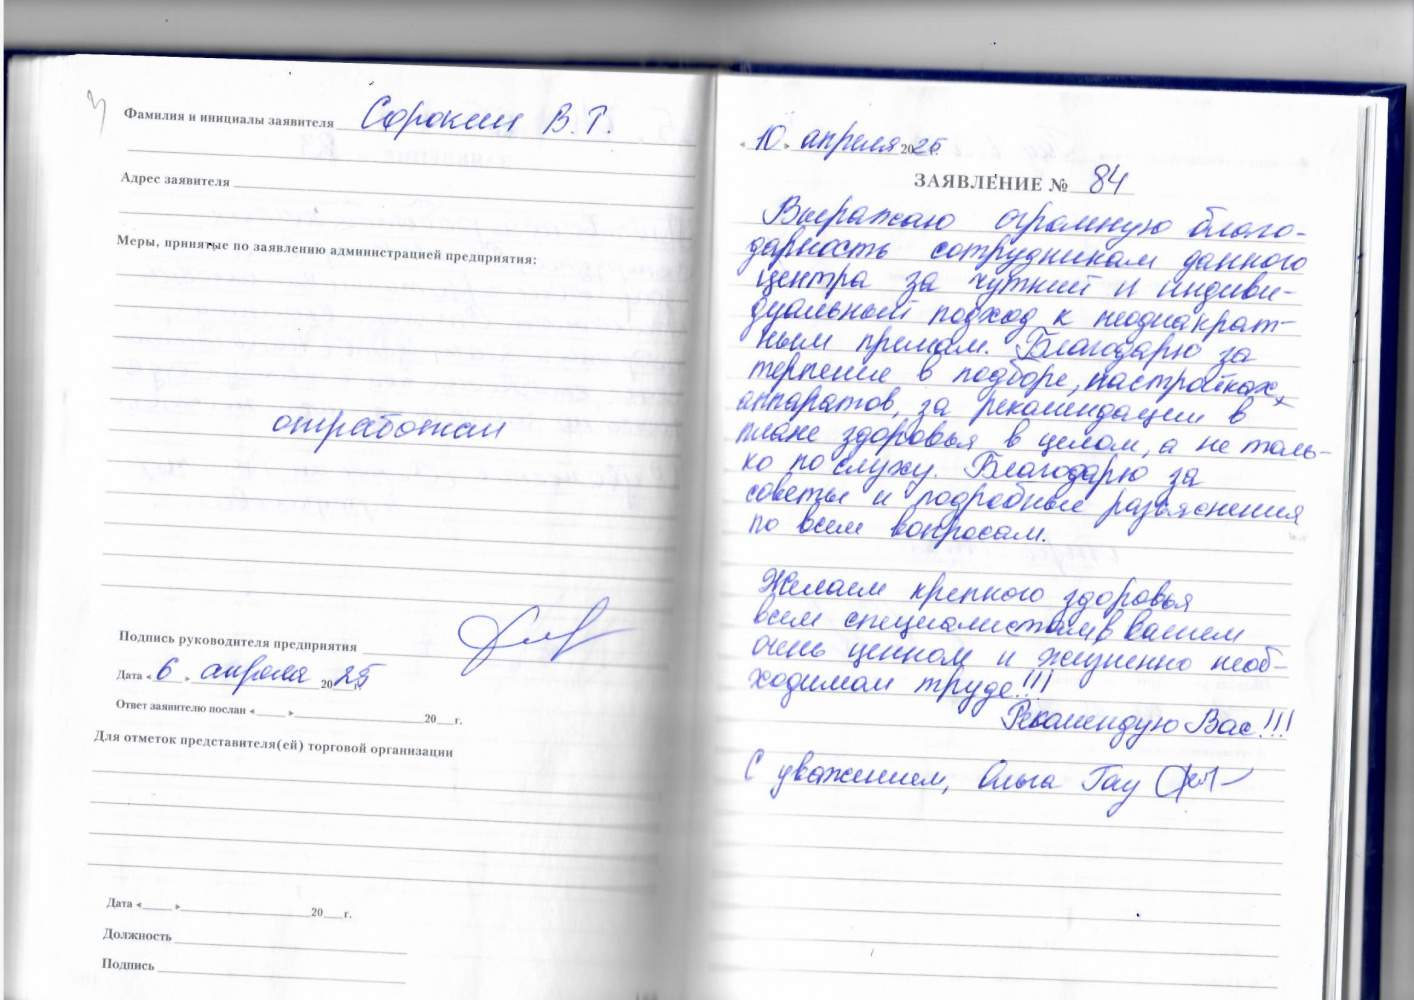 Фамилия и инициалы заявителя Сорокин В. Г.
Адрес заявителя
Меры, принятые по заявлению администрацией предприятия:
отработан
Подпись руководителя предприятия
Дата « 6 » апреля 20 25 г.
Ответ заявителю послан « » 20 г.
Для отметок представителя(ей) торговой организации
Дата « » 20 г.
Должность
Подпись
« 10 » апреля 20 25 г.
ЗАЯВЛЕНИЕ № 84
Выражаю огромную благо-
дарность сотрудникам данного
центра за чуткий и индиви-
дуальный подход к неоднакрат-
ным премам. Благодарю за
терпение в подборе, настройках,
аппаратов, за рекомендации в
плане здоровья в целом, а не толь-
ко по слуху. Благодарю за
советы и подробные разъяснения
по всем вопросам.
Желаем крепкого здоровья
всем специалистам в вашем
очень ценном и жизненно необ-
ходимом труде!!!
Рекомендую Вас!!!
С уважением, Ольга Гау